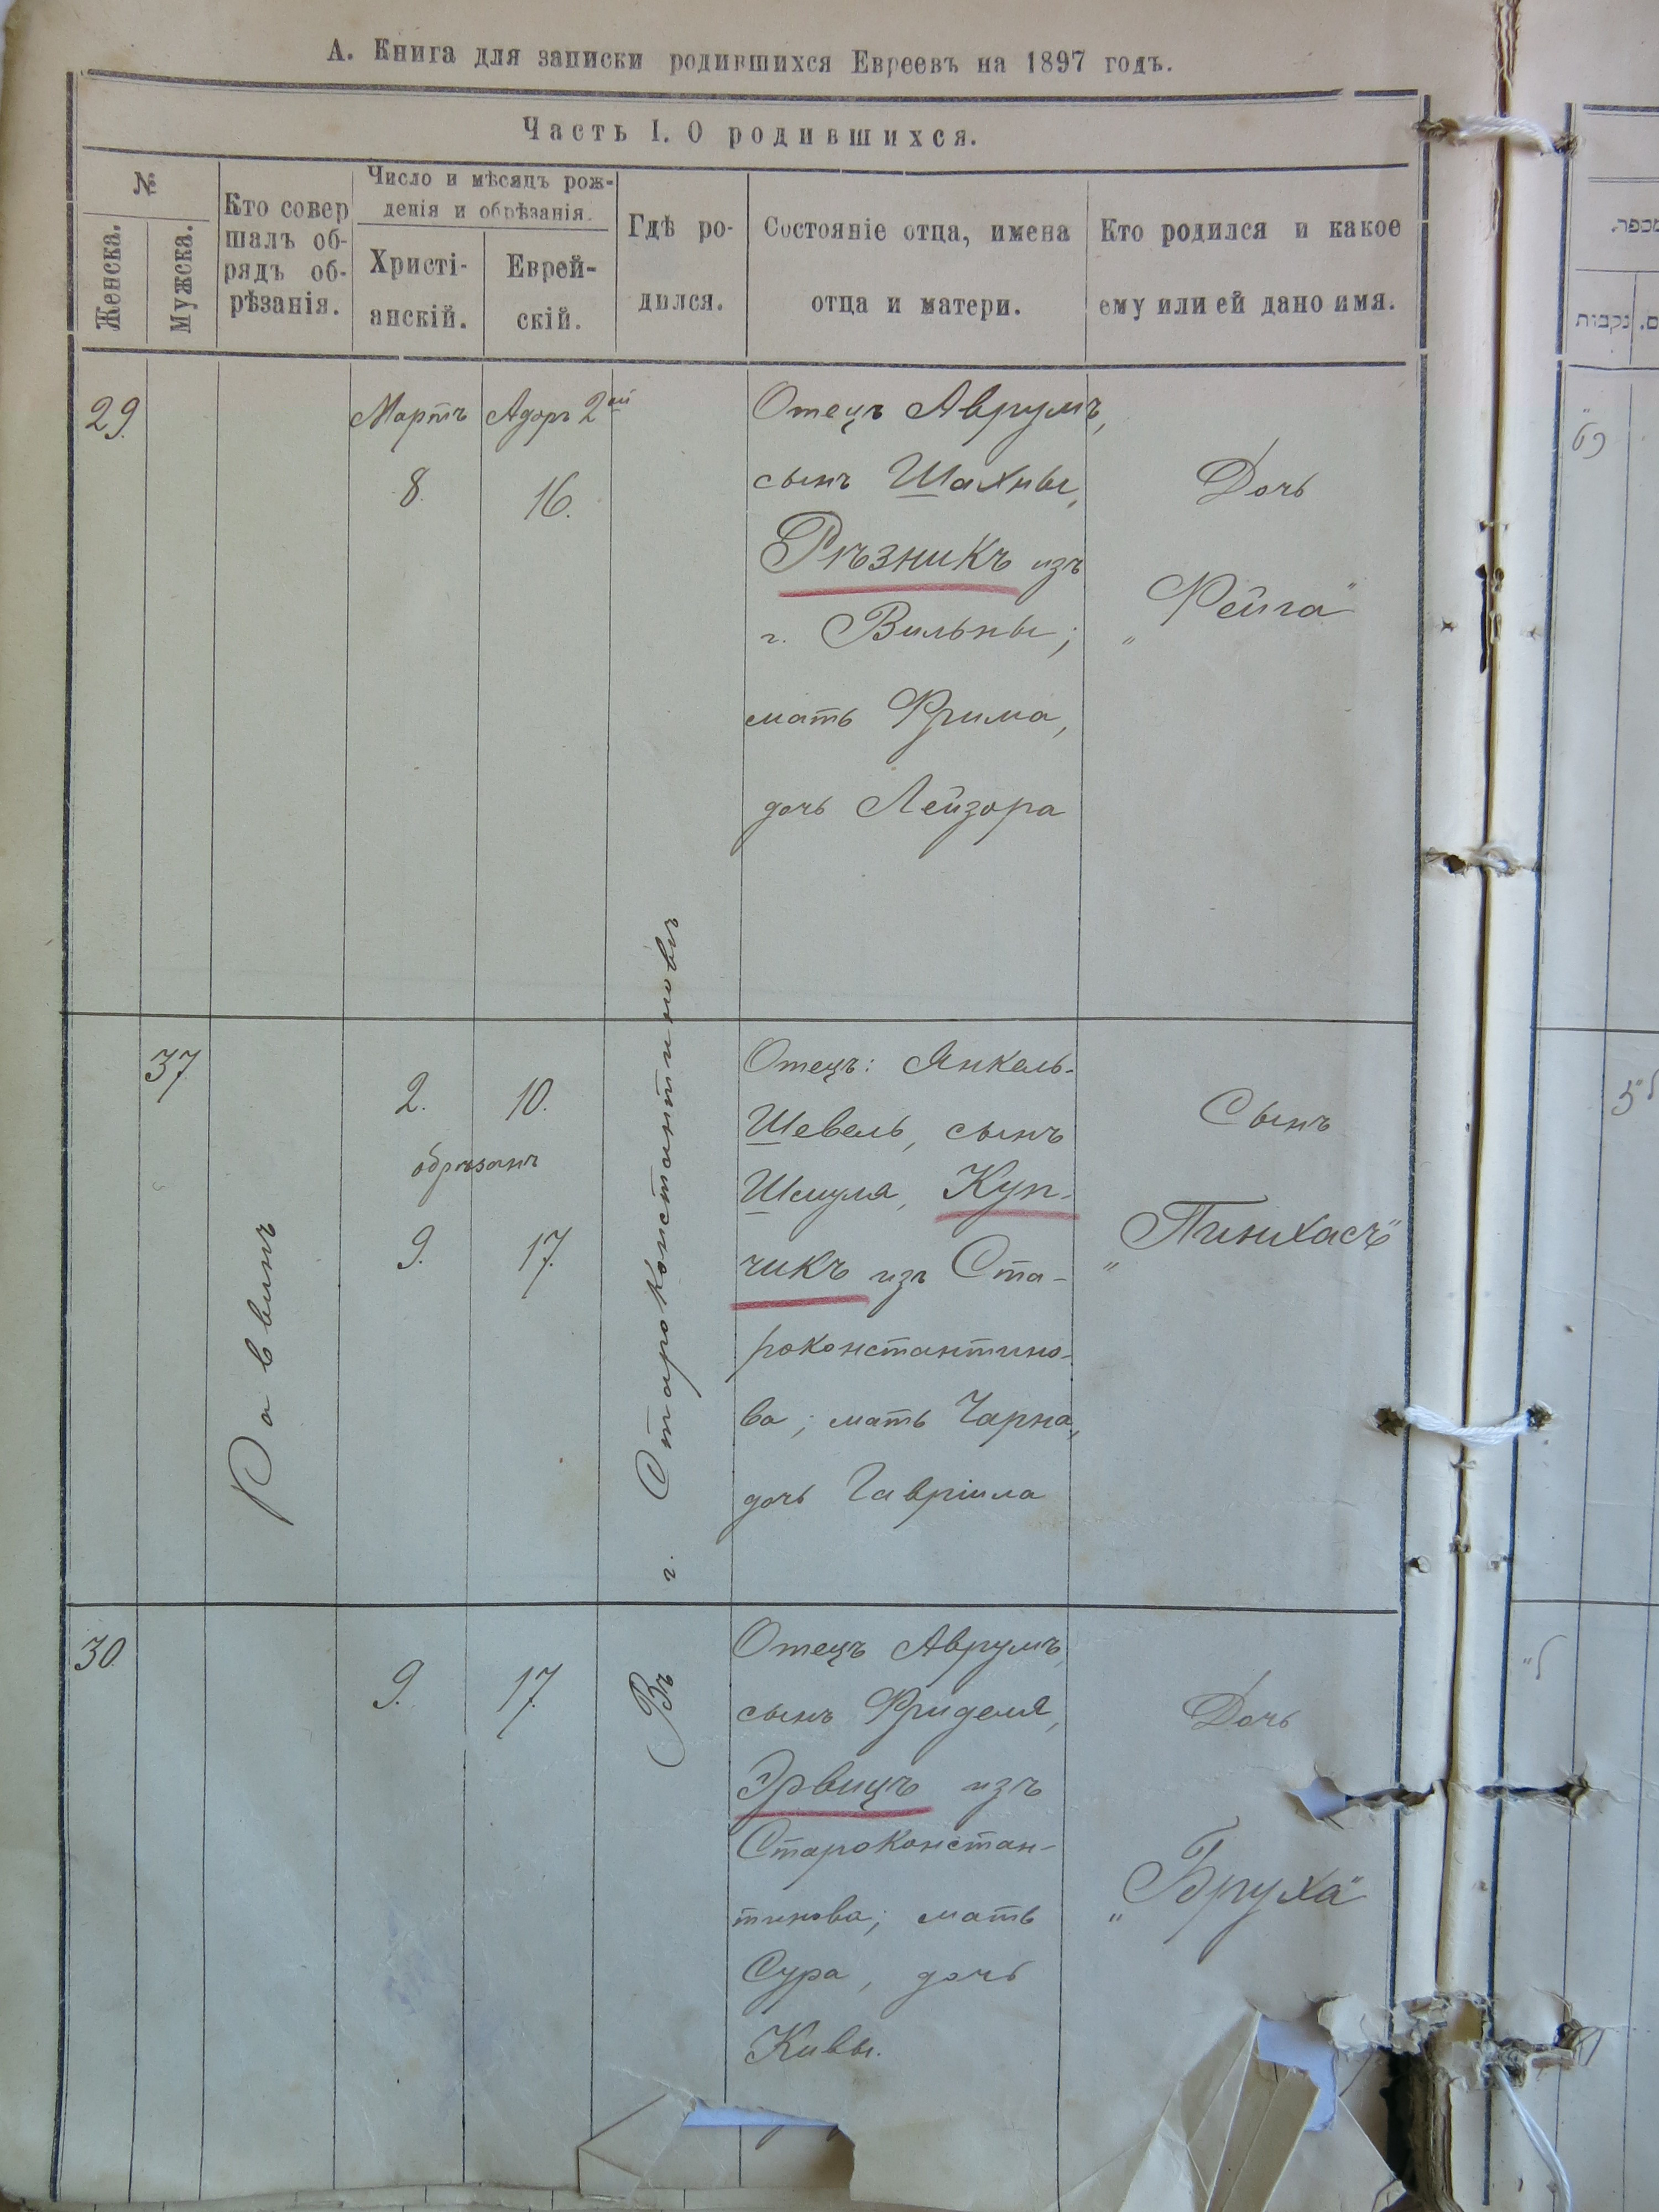 А. Книга для записки родившихся Евреевъ на 1897 годъ.
Часть I. О родившихся.
№
Женска.
Мужска.
Кто совер
шалъ об-
рядъ об-
рѣзанія.
Число и мѣсяцъ рож-
денія и обрѣзанія.
Христі-
анскій.
Еврей-
скій.
Гдѣ ро-
дился.
Состояніе отца, имена
отца и матери.
Кто родился и какое
ему или ей дано имя.
29.
Мартъ
8.
Адаръ 2ой
16.
Отецъ Аврумъ,
сынъ Шахны,
Рѣзникъ изъ
г. Вильны;
мать Фрима,
дочь Лейзора
Дочь
„Фейга"
37
Раввинъ
2.
10.
обрѣзанъ
9.
17.
Въ г. Староконстантиновѣ
Отецъ: Янкель-
Шевель, сынъ
Шмуля, Куп-
чикъ изъ Ста-
роконстантино-
ва; мать Чарна,
дочь Гавріила
Сынъ
„Пинхасъ"
30.
9.
17.
Отецъ Аврумъ,
сынъ Фриделя,
Эрвицъ изъ
Староконстан-
тинова; мать
Сура, дочь
Кивы.
Дочь
„Бруха"
מספר.
נקבות